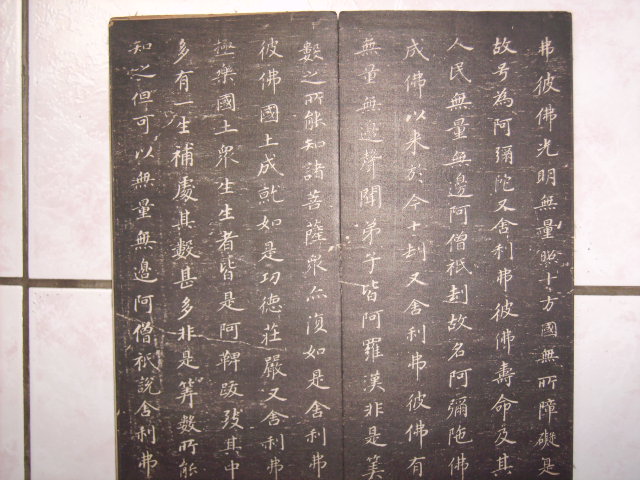 弗彼佛光明無量照十方國無所障礙是
故号為阿彌陀又舍利弗彼佛壽命及其
人民無量無邊阿僧祇劫故名阿彌陁佛
成佛以来於今十劫又舍利弗彼佛有
無量無邊聲聞弟子皆阿羅漢非是筭
數之所能知諸菩薩衆亦復如是舍利弗
彼佛國土成就如是功德莊嚴又舍利弗
極樂國土衆生生者皆是阿鞞跋致其中
多有一生補處其數甚多非是筭數所能
知之但可以無量無邊阿僧祇說舍利弗